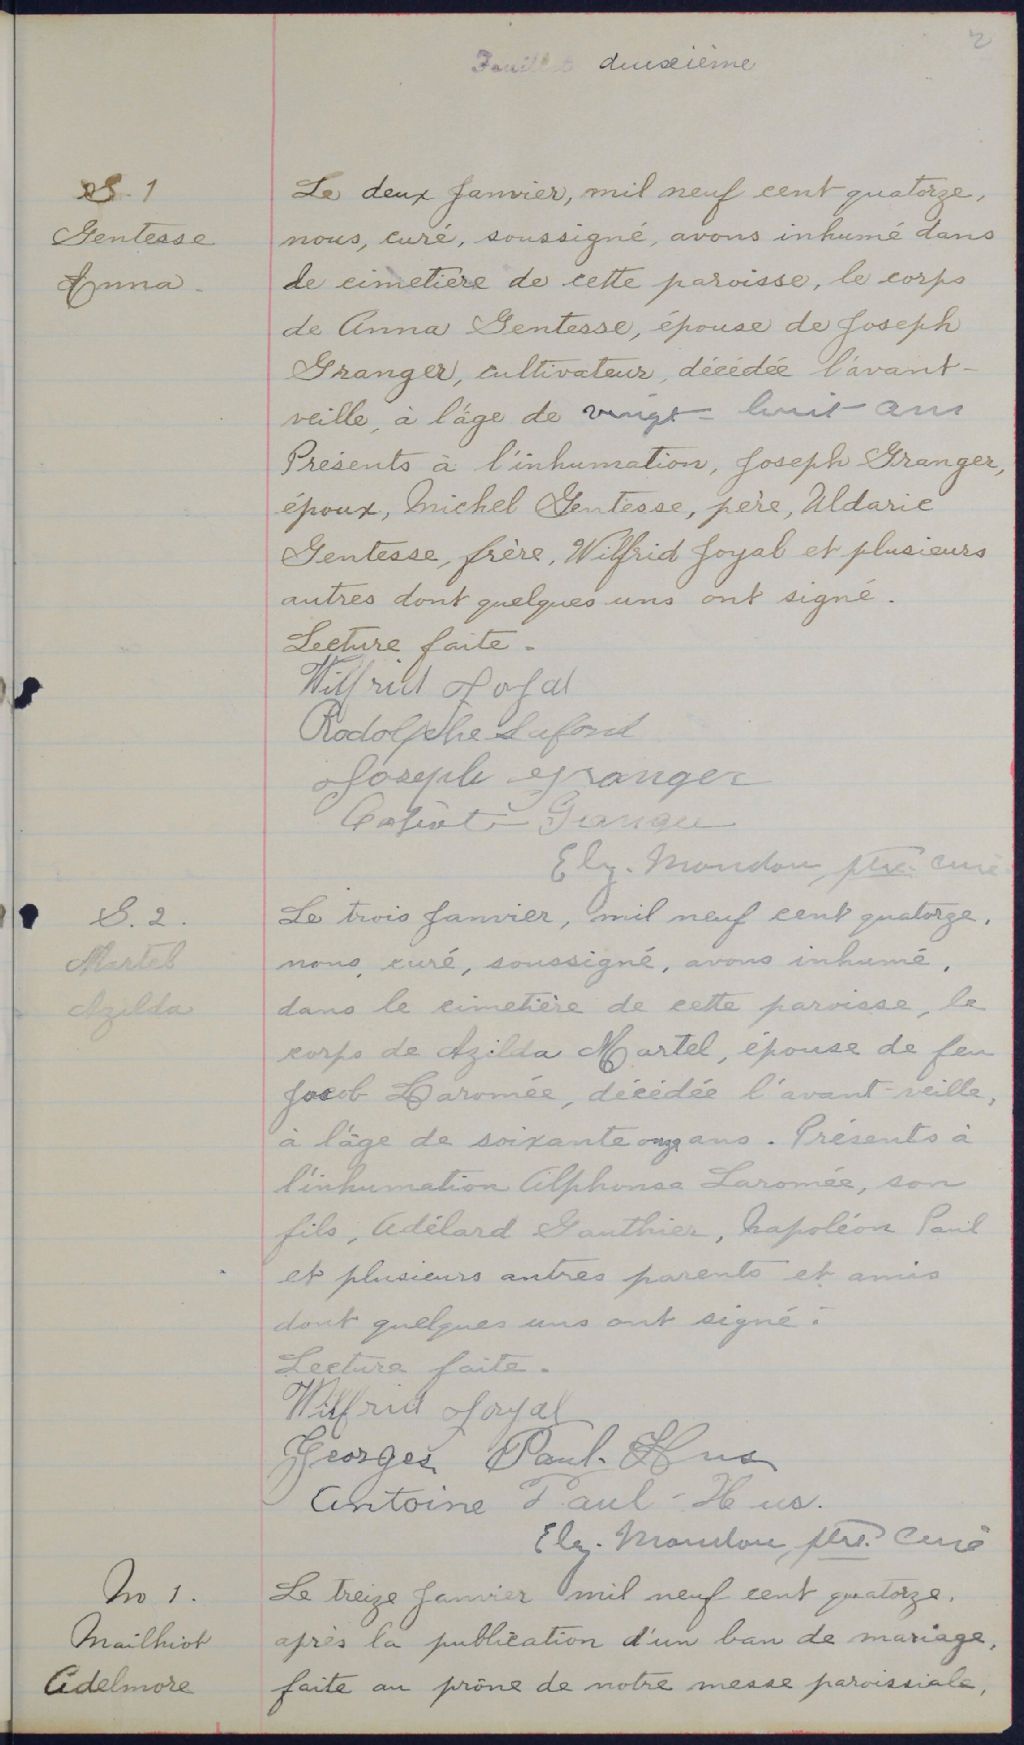 2
Feuillet deuxième
S. 1
Gentesse
Anna.
Le deux Janvier, mil neuf cent quatorze,
nous, curé, soussigné, avons inhumé dans
le cimetière de cette paroisse, le corps
de Anna Gentesse, épouse de Joseph
Granger, cultivateur, décédée l'avant-
veille, à l'âge de vingt-huit ans
Présents à l'inhumation, Joseph Granger,
époux, Michel Gentesse, père, Uldaric
Gentesse, frère, Wilfrid Joyal et plusieurs
autres dont quelques uns ont signé.
Lecture faite.
Wilfrid Joyal
Rodolphe Laford
Joseph Granger
Granger
Elz. Mondou, ptre. curé
S. 2.
Martel
Azilda
Le trois Janvier, mil neuf cent quatorze,
nous, curé, soussigné, avons inhumé,
dans le cimetière de cette paroisse, le
corps de Azilda Martel, épouse de feu
Jacob Laromée, décédée l'avant-veille,
à l'âge de soixante onze ans. Présents à
l'inhumation Alphonse Laromée, son
fils, Adélard Gauthier, Napoléon Paul
et plusieurs autres parents et amis
dont quelques uns ont signé.
Lecture faite.
Wilfrid Joyal
Georges Paul-Hus
Antoine Paul-Hus.
Elz. Mondou, ptre. curé
No 1.
Mailhiot
Adelmore
Le treize Janvier mil neuf cent quatorze,
après la publication d'un ban de mariage,
faite au prône de notre messe paroissiale,